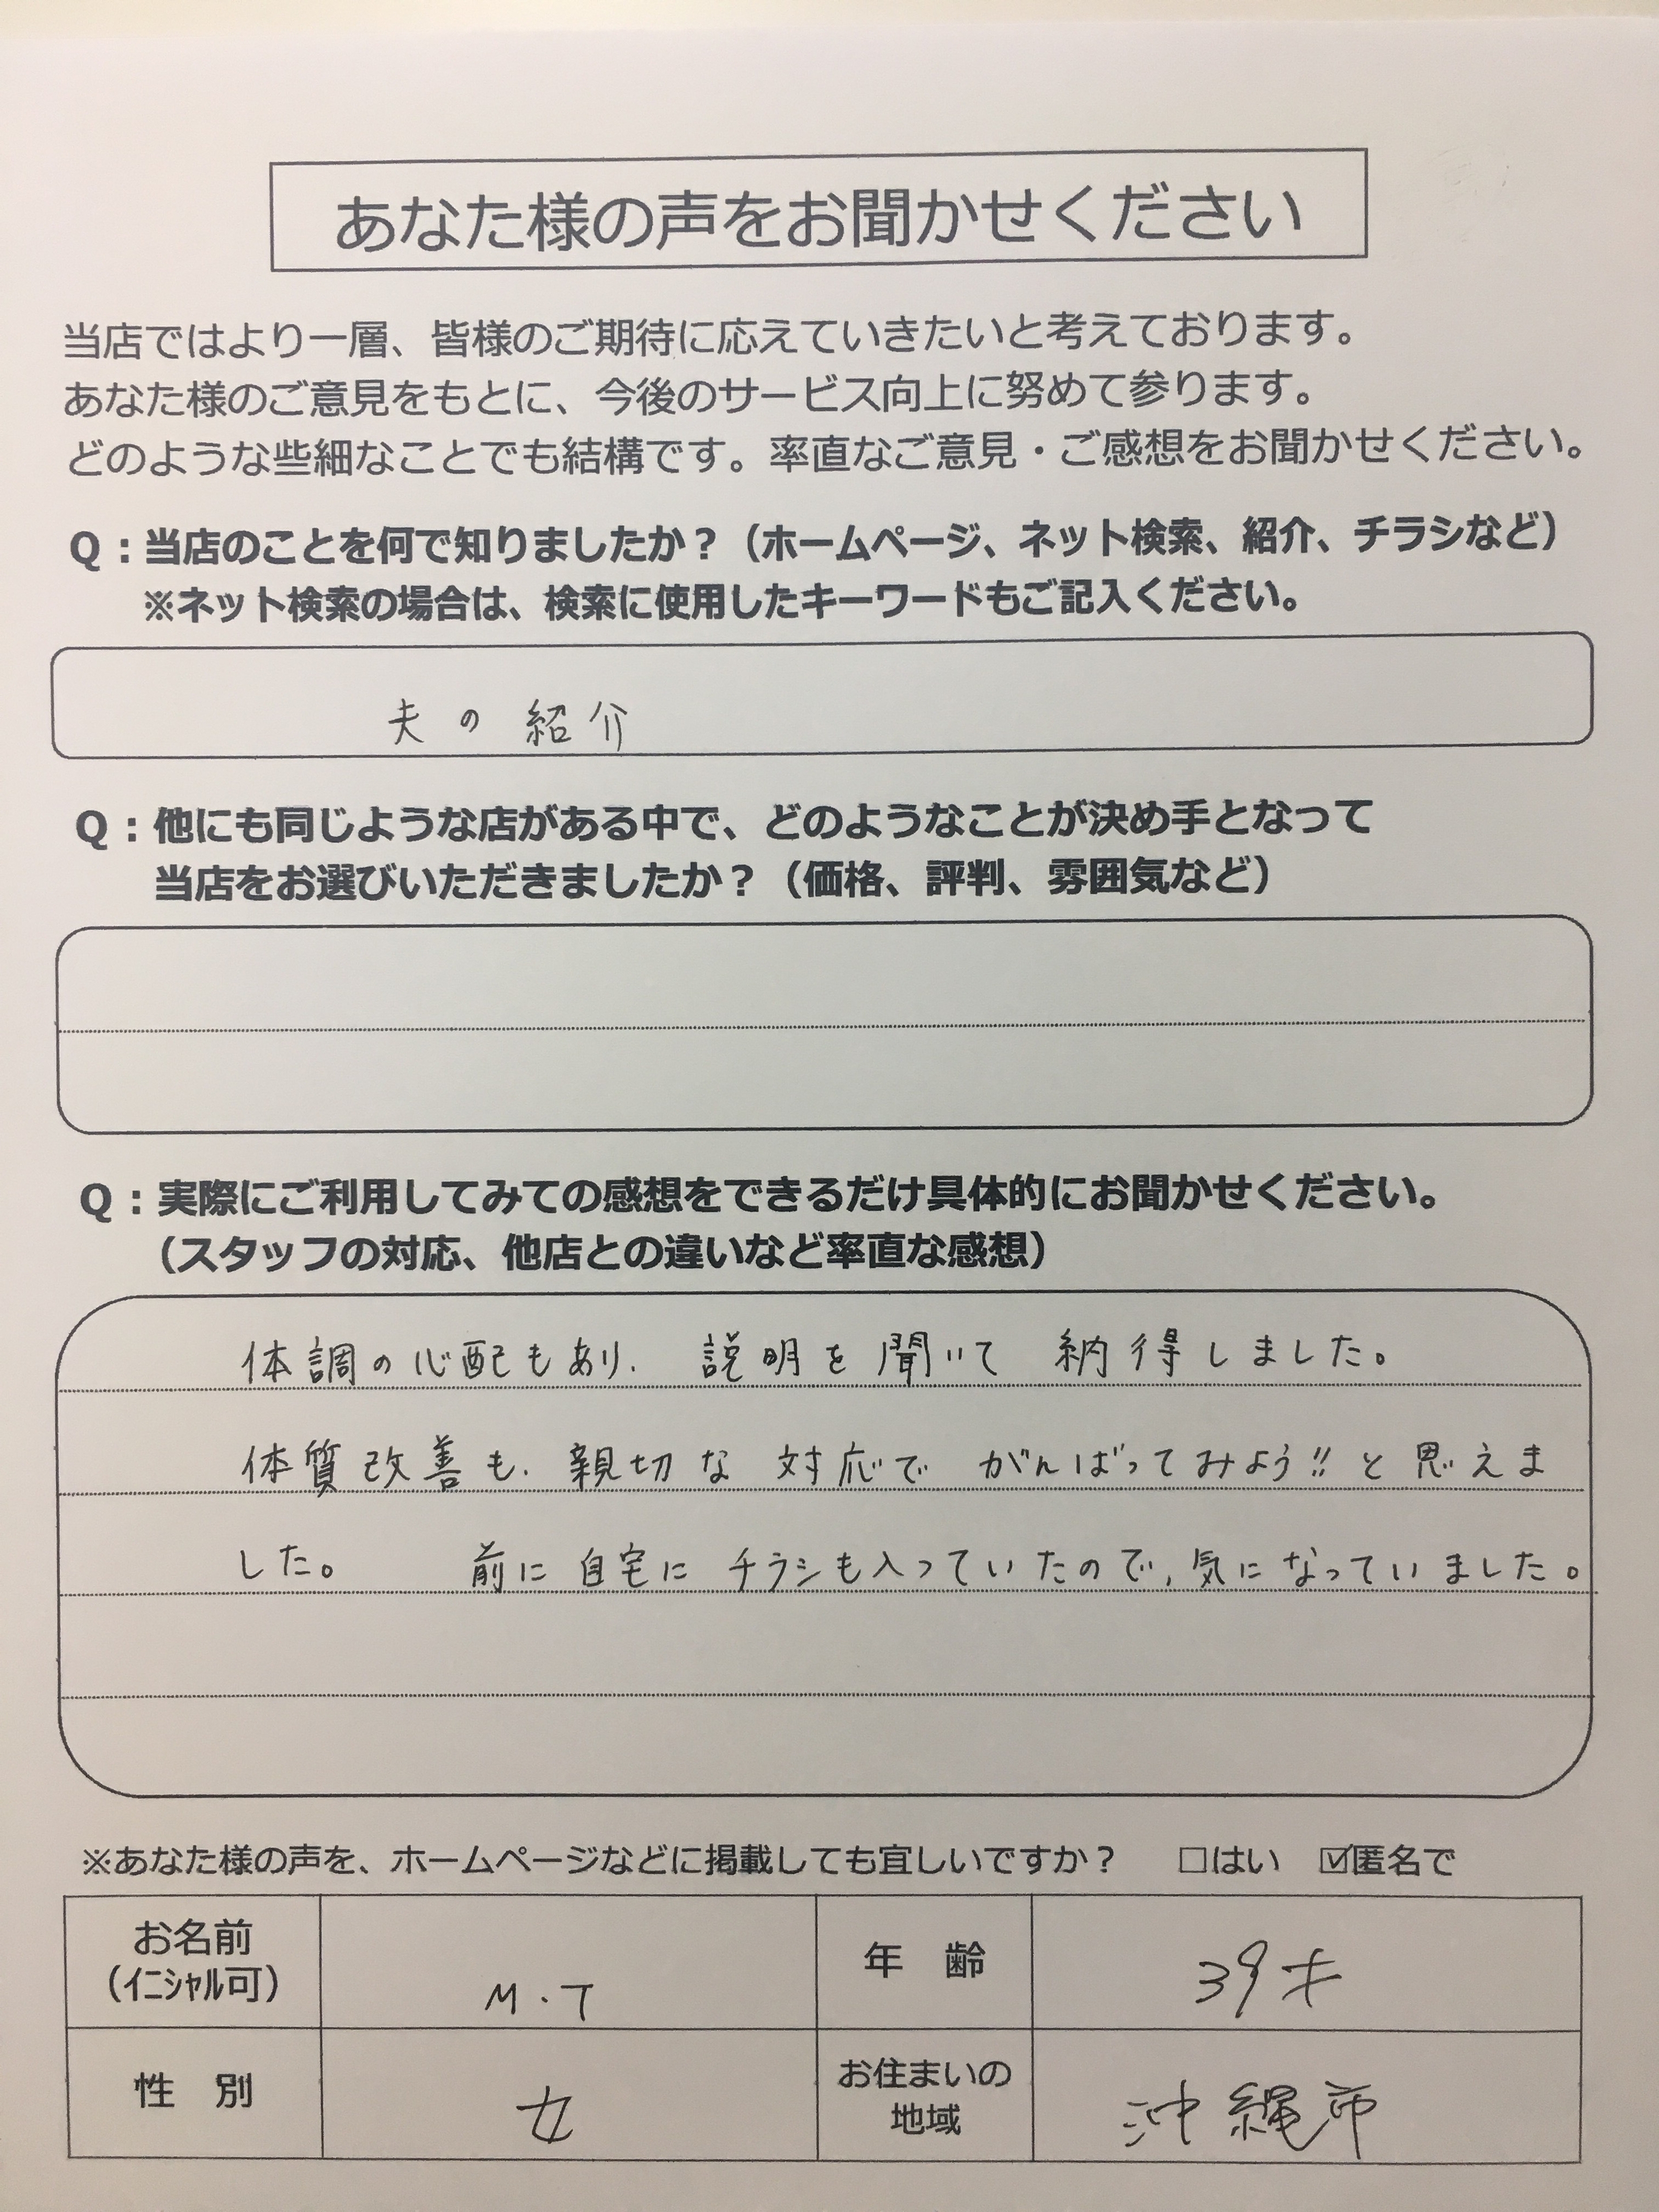 あなた様の声をお聞かせください
当店ではより一層、皆様のご期待に応えていきたいと考えております。
あなた様のご意見をもとに、今後のサービス向上に努めて参ります。
どのような些細なことでも結構です。率直なご意見・ご感想をお聞かせください。
Q：当店のことを何で知りましたか？（ホームページ、ネット検索、紹介、チラシなど）
※ネット検索の場合は、検索に使用したキーワードもご記入ください。
夫の紹介
Q：他にも同じような店がある中で、どのようなことが決め手となって
当店をお選びいただきましたか？（価格、評判、雰囲気など）
Q：実際にご利用してみての感想をできるだけ具体的にお聞かせください。
（スタッフの対応、他店との違いなど率直な感想）
体調の心配もあり、説明を聞いて納得しました。
体質改善も、親切な対応でがんばってみよう!!と思えま
した。 前に自宅にチラシも入っていたので、気になっていました。
※あなた様の声を、ホームページなどに掲載しても宜しいですか？ □はい ☑匿名で
お名前 M・T 年 齢 39才
（ｲﾆｼｬﾙ可）
性 別 女 お住まいの 沖縄市
地域